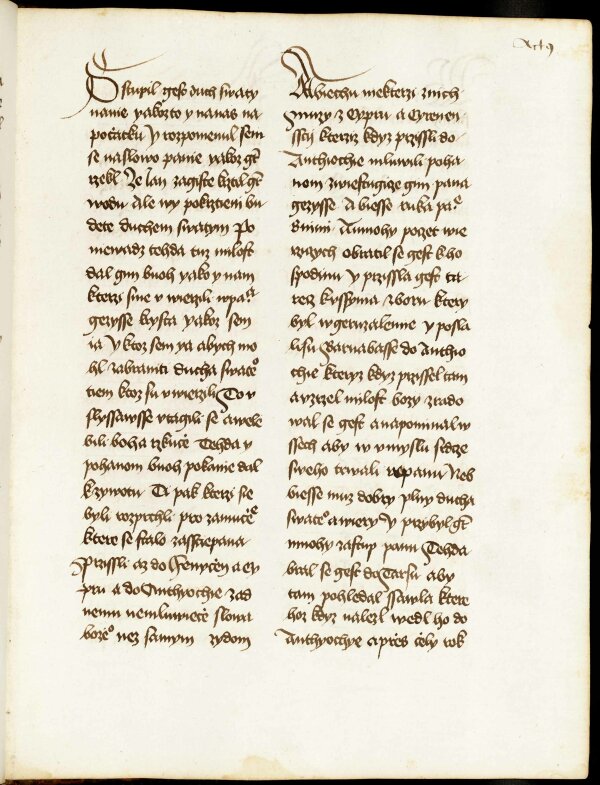 Actꝰ
Ostupil gest duch swaty
nanie yakożto y nanas na
pocżatku Y rozpomenul sem
se naslowo panie yakoż gt
rzekl Ze Jan zagiste krztal gt
wodu Ale wy pokrztieni bu
dete duchem swatym Po
niewadz tehda tuz milost
dal gim buoh yako y nam
kterzi sme v wierzili wpaᵃ
gezysse krysta yakoz sem
ia Y ktoz sem ya abych mo
hl zabraniti ducha swateᵒ
tiem ktoz su vwierzili To v
slyssawsse vtagili se awele
bili boha rzkucė Tehda y
pohanom buoh pokanie dal
kzywotu Ti pak kterzi sie
byli rozprchli pro zamucėᵉ
ktere se stalo zasstiepana
Przissli az do ffenycen a cy
pru a do Anthyochie zad
nemu nemluwiecė slowa
bozieᵒ nez samym zydom
Abiechu niekterzi znich
muzy z Cypru a Cyrenen
sscij kterziz kdyz przissli do
Anthiochie mluwili poha
nom zwiestugice gim pana
gezysse A biesse ruka paᵉ
snimi Amnohy pocżet wie
rzicych obratil se gest kho
spodinu Y przissla gest ta
recż kvssyma zboru ktery
byl wgeruzalemie y posla
li su Barnabasse do Anthio
chie kteryz kdyz przissel tam
a vzrzel milost bozy zrado
wal se gest anapominal w
ssech aby w vmyslu srdze
sweho trwali wpanu Neb
biesse muz dobry plny ducha
swateᵒ awiery Y przybyl gt
mnohy zastup panu Tehda
bral se gest do Tarsu aby
tam pohledal ssawla ktere
hoz kdyz nalezl wedl ho do
Anthyochye aprzės cėly rok